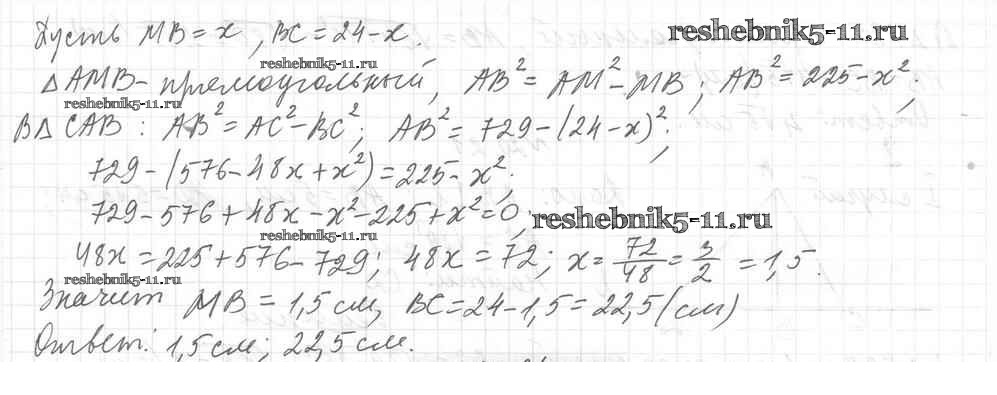 Пусть MB = x, BC = 24 - x.
reshebnik5-11.ru
reshebnik5-11.ru
△AMB - прямоугольный, AB² = AM² - MB; AB² = 225 - x²;
reshebnik5-11.ru
В △CAB: AB² = AC² - BC²; AB² = 729 - (24 - x)²;
729 - (576 - 48x + x²) = 225 - x²;
729 - 576 + 48x - x² - 225 + x² = 0;
reshebnik5-11.ru
reshebnik5-11.ru
48x = 225 + 576 - 729; 48x = 72; x = 72/48 = 3/2 = 1,5.
reshebnik5-11.ru
Значит MB = 1,5 см, BC = 24 - 1,5 = 22,5 (см)
Ответ: 1,5 см; 22,5 см.